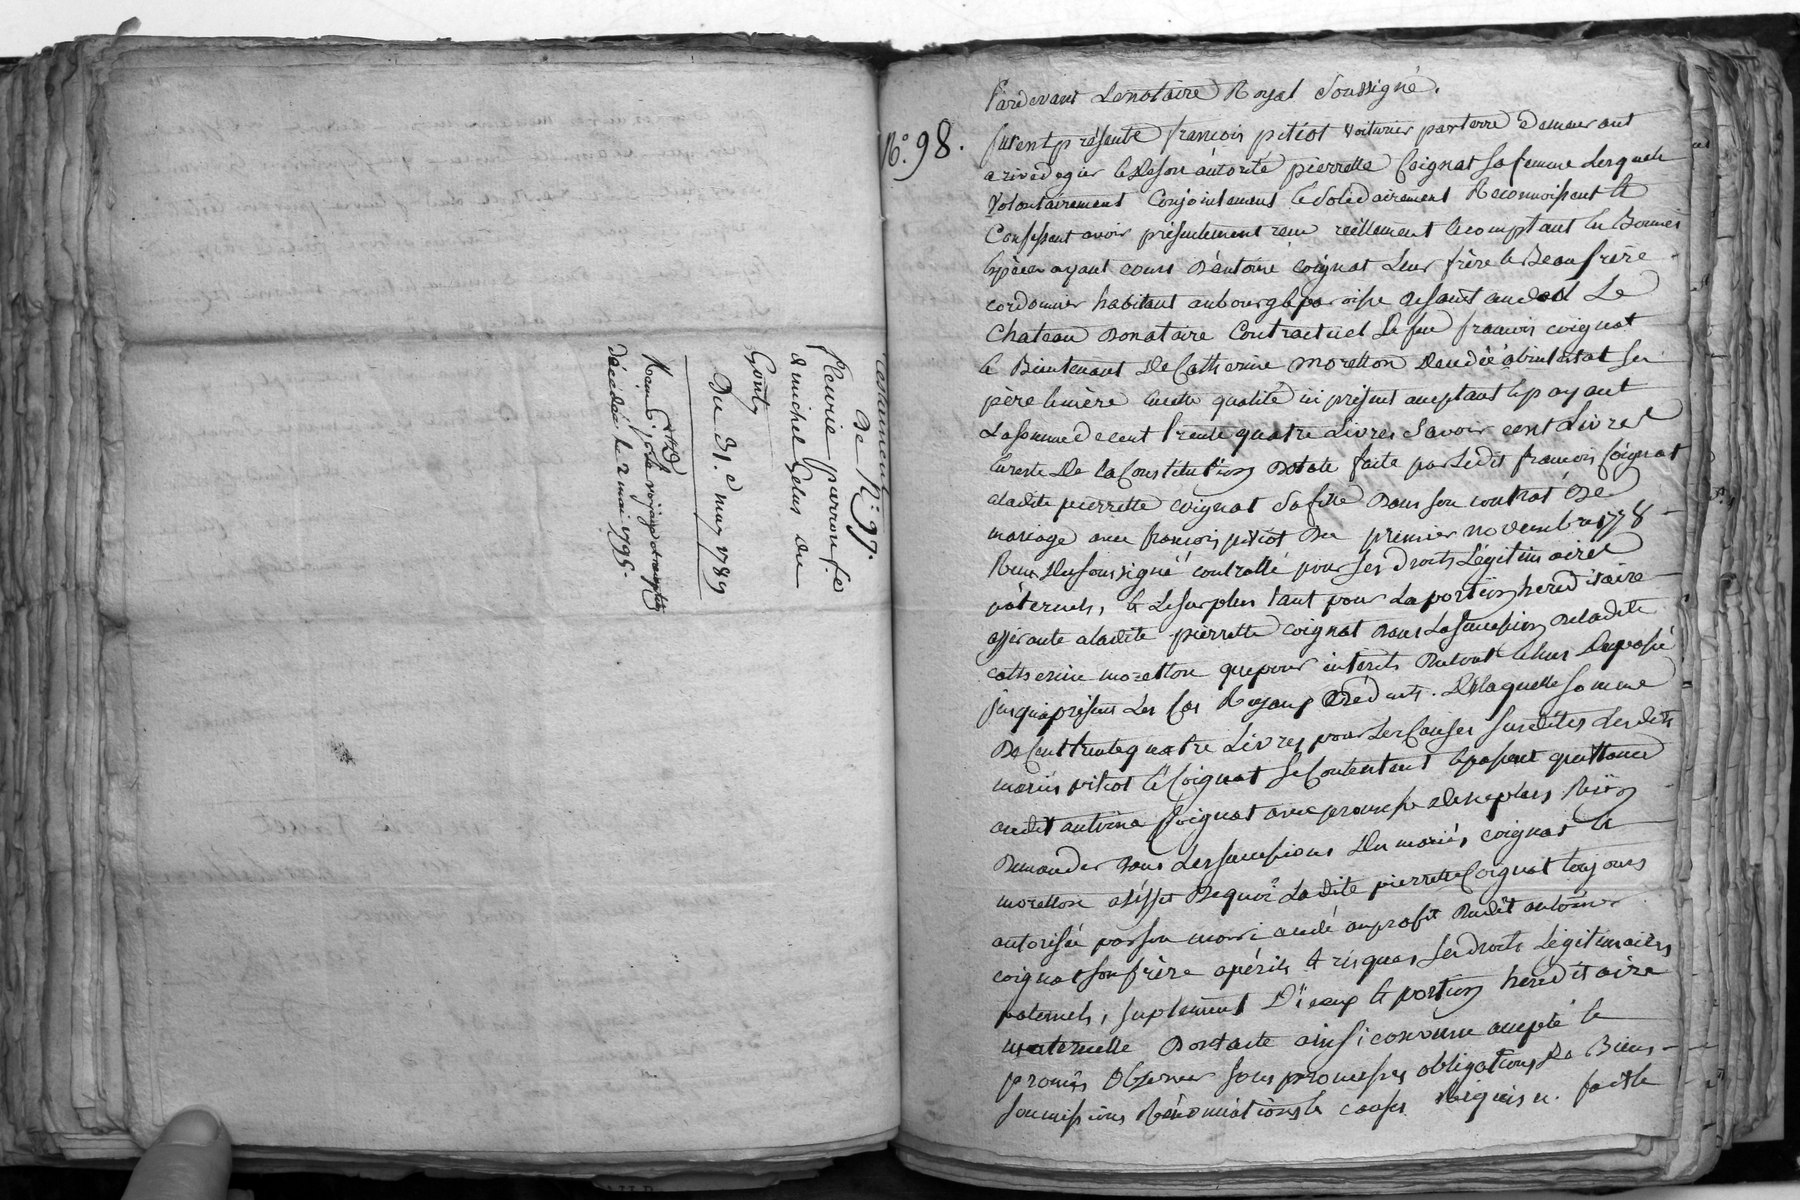 testament
De N.° 97.
fleurie parrou fe
a michel Gelas du
Gouty
Du 31.e may 1789
décédée le 2 mai 1795.
N.° 98.
Pardevant Le notaire Royal Soussigné.
furent présents françois pitiot voiturier par terre demeurant
a rivedegier & de son autorité pierrette Coignat sa femme Lesquels
Volontairement Conjointement & solidairement Reconnoissent &
Confessent avoir présentement reçu réellement & comptant en Bonnes
Espèces ayant cours d'antoine Coignat Leur frère & Beaufrère
cordonnier habitant au bourg & paroisse de saint andeol Le
Chateau Donataire Contractuel de feu françois coignat
& Bientenant De Catherine moretton décédée abintestat ses
père & mère en cette qualité ici présent acceptant & payant
La somme de cent trente quatre Livres Savoir cent Livres
en reste De la Constitution Dotale faite par Ledit françois Coignat
a ladite pierrette coignat sa fille Dans son contrat De
mariage avec françois pitiot Du premier novembre 1778
Reçu du soussigné controllé pour ses droits Légitimaires
paternels, & Le surplus tant pour La portion héréditaire
afférante a ladite pierrette coignat Dans La succession de ladite
catherine moretton que pour intérêts Du tout échus Du passé
jusqu'a présent Les Cas Royaux Déduits. De laquelle somme
De Cent trente quatre Livres pour Les Causes susdites Lesdits
mariés pitiot & Coignat se Contentent & passent quittance
audit antoine Coignat avec promesse de ne plus Rien
Demander Dans Les successions Des mariés coignat &
moretton a l'effet De quoi Ladite pierrette Coignat toujours
autorisée par son mari cède au profit Dudit antoine
coignat son frère a périls & risques, ses droits Légitimaires
paternels, suplément D'iceux & portion héréditaire
maternelle Dont acte ainsi convenu accepté &
promis observer sous promesses obligations De Biens
soumissions Rénonciations & clauses Requises. fait &